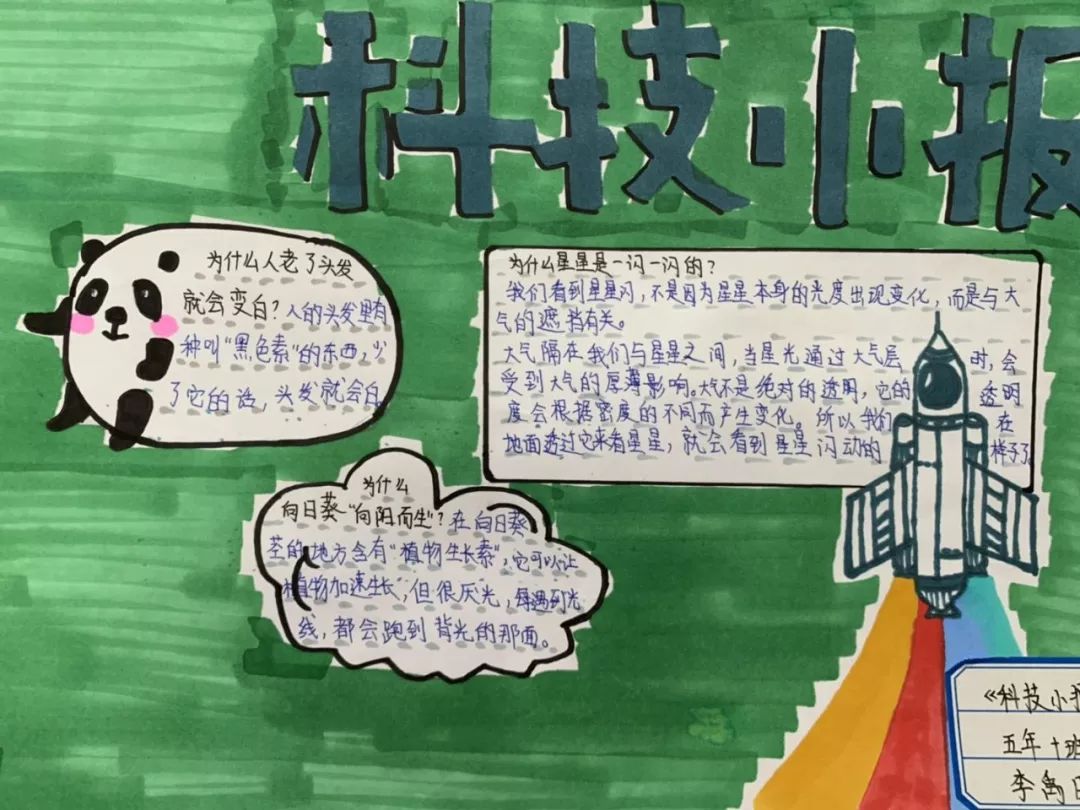 科技小报
为什么人老了头发
就会变白？人的头发里有
种叫“黑色素”的东西，少
了它的话，头发就会白
为什么星星是一闪一闪的？
我们看到星星闪，不是因为星星本身的光度出现变化，而是与大
气的遮挡有关。
大气隔在我们与星星之间，当星光通过大气层时，会
受到大气的厚薄影响。大气不是绝对的透明，它的透明
度会根据密度的不同而产生变化。所以我们在
地面透过它来看星星，就会看到星星闪动的样子了
为什么
向日葵“向阳而生”？在向日葵
茎的地方含有“植物生长素”，它可以让
植物加速生长，但很厌光，每遇到光
线，都会跑到背光的那面。
《科技小报
五年十班
李禹